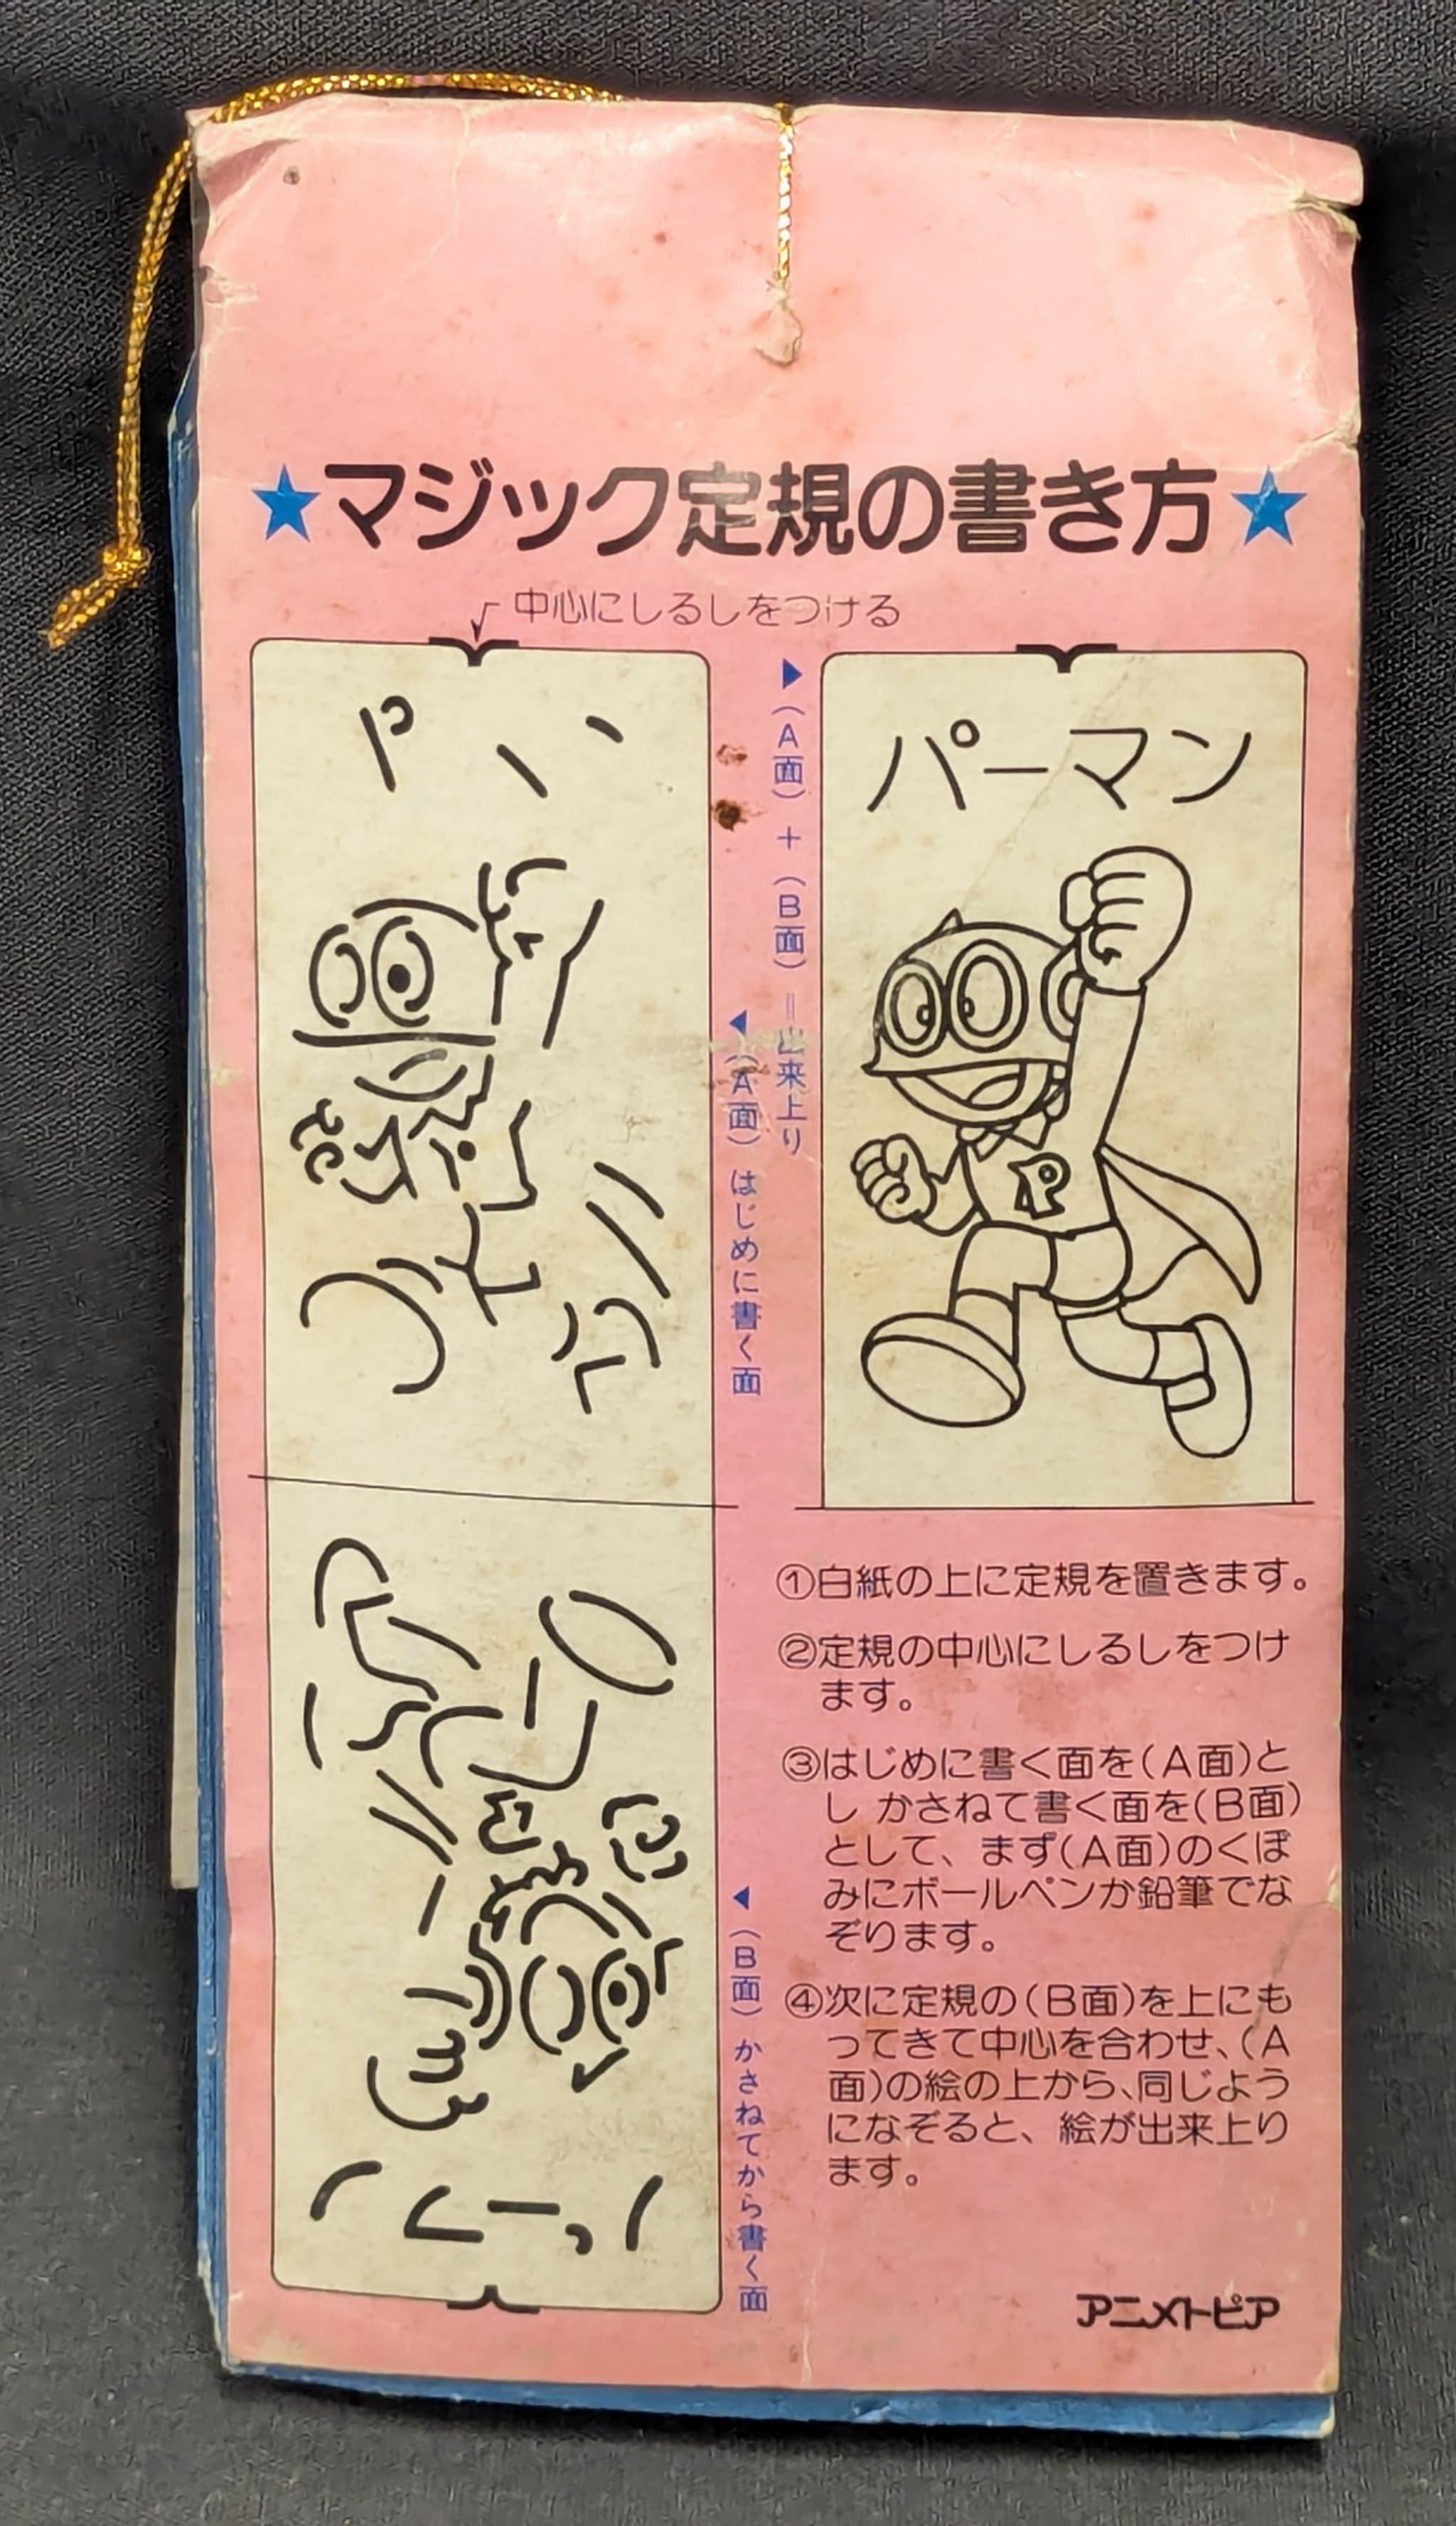 ★マジック定規の書き方★
中心にしるしをつける
パーマン
▶(A面)+(B面)=出来上り
◀(A面)はじめに書く面
◀(B面)かさねてから書く面
①白紙の上に定規を置きます。
②定規の中心にしるしをつけ
ます。
③はじめに書く面を(A面)と
し かさねて書く面を(B面)
として、まず(A面)のくぼ
みにボールペンか鉛筆でな
ぞります。
④次に定規の(B面)を上にも
ってきて中心を合わせ、(A
面)の絵の上から、同じよう
になぞると、絵が出来上り
ます。
アニメトピア